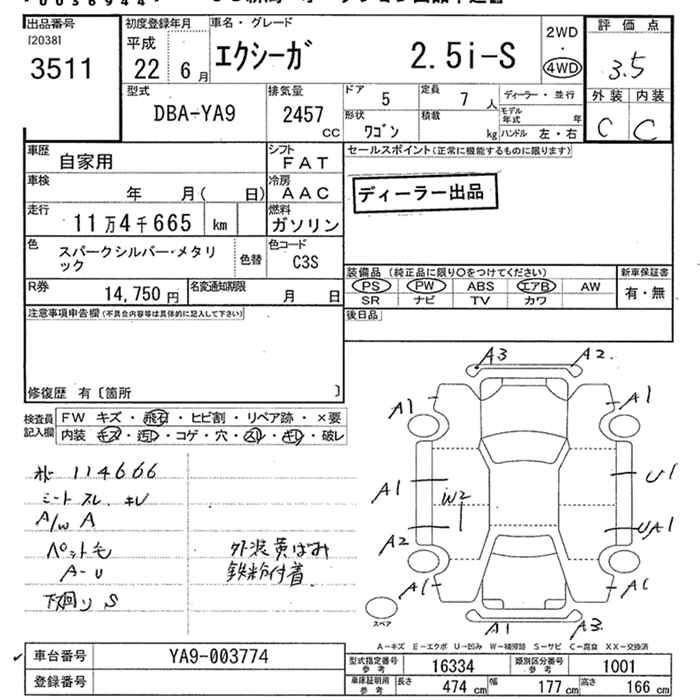 出品番号
[2038]
3511
初度登録年月
平成
22年 6月
車名・グレード
エクシーガ 2.5i-S
2WD
・
4WD
評価点
3.5
外装 内装
C C
型式
DBA-YA9
排気量
2457
CC
ドア 5
定員 7人
ディーラー・並行
モデル年式 年
形状
ワゴン
積載 kg
ハンドル 左・右
車歴
自家用
シフト
FAT
セールスポイント(正常に機能するものに限ります)
ディーラー出品
車検
年 月( 日)
冷房
AAC
走行
11万4千665 km
燃料
ガソリン
色
スパークシルバー・メタリ
ック
色替
色コード
C3S
R券
14,750円
名変通知期限
月 日
装備品(純正品に限り○をつけてください)
PS PW ABS エアB AW
SR ナビ TV カワ
新車保証書
有・無
注意事項申告欄(不具合内容等は具体的に記入して下さい)
後日品
修復歴 有〔箇所 〕
検査員
記入欄
FW キズ・飛石・ヒビ割・リペア跡・×要
内装 キズ・汚レ・コゲ・穴・スレ・キレ・破レ
114666
シート スレ キレ
A/W A
ペット毛
A-U
下廻り S
外装黄ばみ
鉄粉付着
A3 A2
A1 A1
A1 W2 U1
A2 UA1
A1
A1 A3
スペア
A-キズ E-エクボ U-凹み W-補修跡 S-サビ C-腐食 XX-交換済
車台番号
YA9-003774
登録番号
型式指定番号
参考
16334
類別区分番号
参考
1001
車庫証明用
参考
長さ 474cm
幅 177cm
高さ 166cm